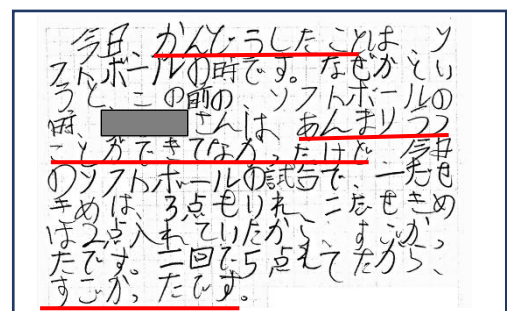 今日、かんどうしたことは、ソ
フトボールの時です。なぜかとい
うと、この前の、ソフトボールの
時、さんは、あんまりうつ
ことができてなかったけど、今日
のソフトボールの試合で、一だせ
きめは、3点もいれ、二だせきめ
は2点入れていたから、すごかっ
たです。二回で5点れてたから、
すごかったです。